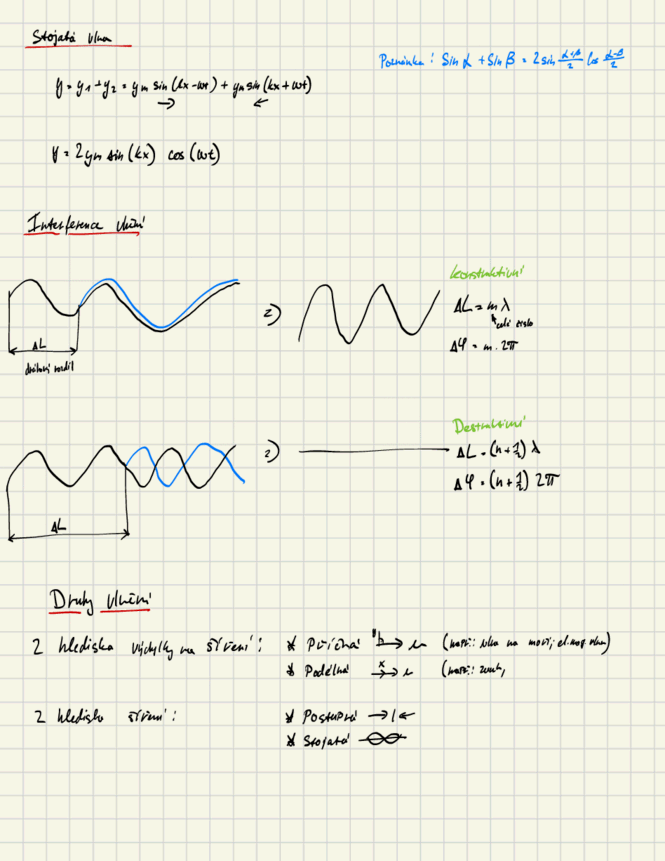 Stojatá vlna
Poznámka: Sin α + Sin β = 2 sin (α+β)/2 cos (α-β)/2
y = y₁ + y₂ = yₘ sin (kx - ωt) + yₘ sin (kx + ωt)
y = 2yₘ sin (kx) cos (ωt)
Interference vlnění
Konstruktivní
ΔL = m λ
celé číslo
Δφ = m . 2π
ΔL
dráhový rozdíl
Destruktivní
ΔL = (n + 1/2) λ
Δφ = (n + 1/2) 2π
ΔL
Druhy vlnění
Z hlediska výchylky na šíření: * Příčná (např.: vlna na moři, el.mag. vlna)
* Podélná (např.: zvuk,
Z hledisko šíření: * Postupná
* Stojatá